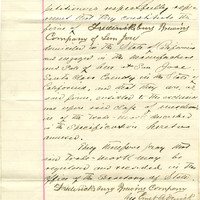 petitioners respectfully repre-
sent that they constitute the
firm of Fredericksburg Brewing
Company of San Jose
domiciled in the State of California
and engaged in the manufacture
and sale of Beer at San Jose
Santa Clara County in the State of
California, and that they are, as
such firm, and
upon said class of merchan-
dise the trade-mark described
in the Specification hereto
annexed.
They therefore pray that
said Trade-mark may be
registered and recorded in the
office of the Secretary of State
Fredericksburg Brewing Company